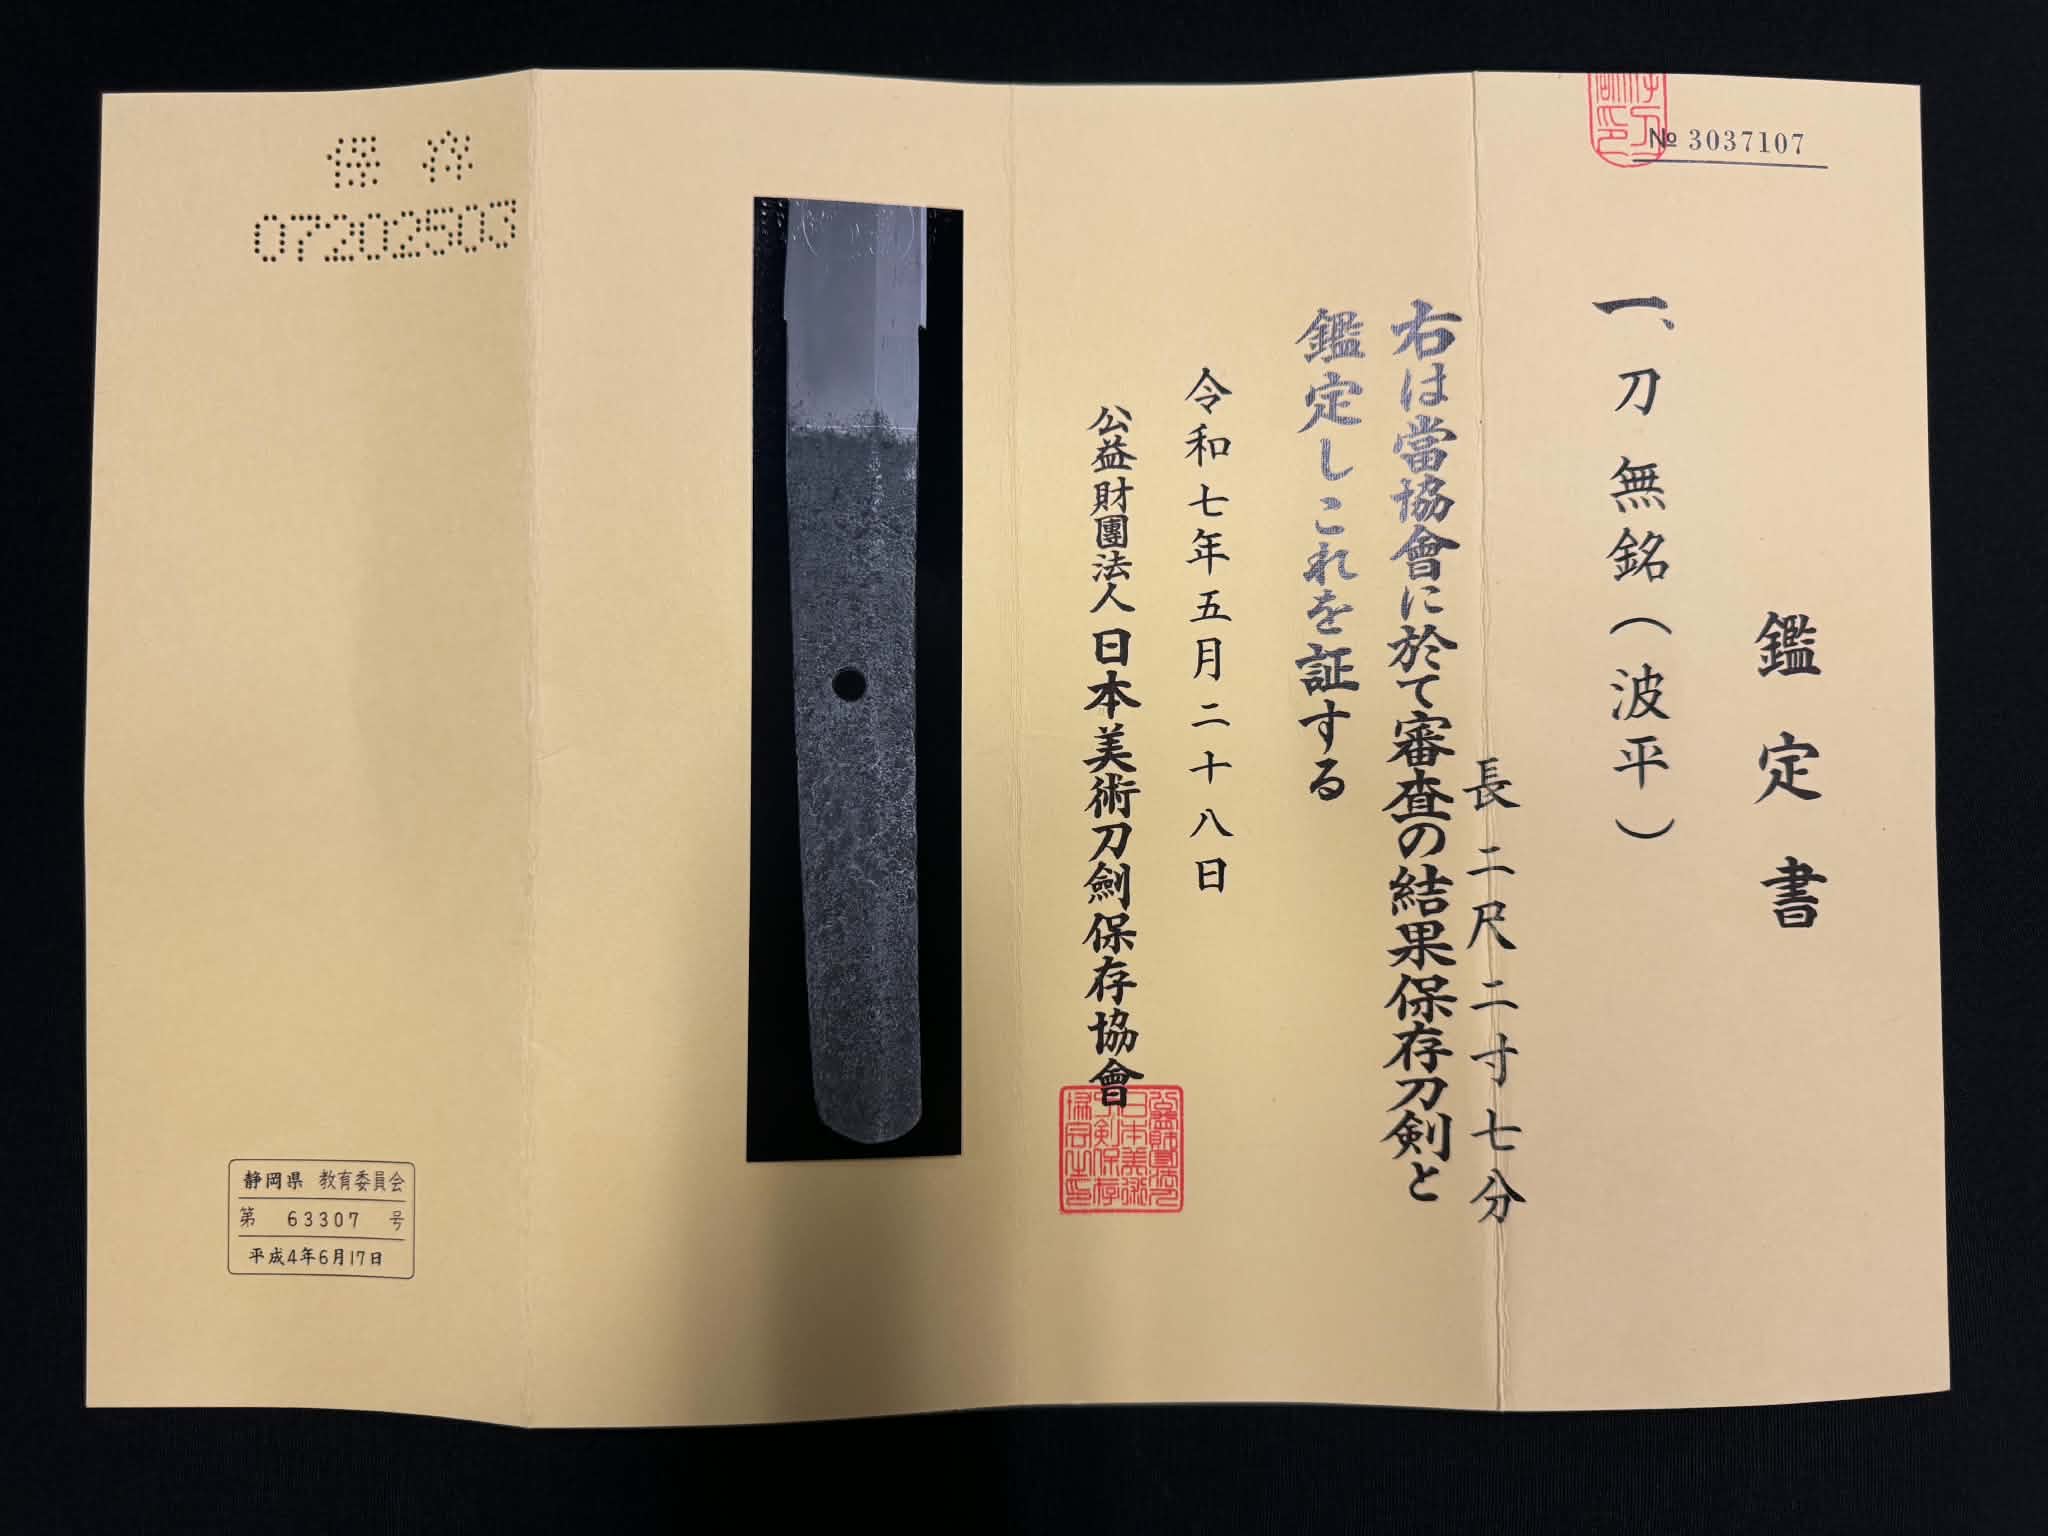 № 3037107
鑑定書
一、刀 無銘（波平）
長二尺二寸七分
右は當協會に於て審査の結果保存刀剣と
鑑定しこれを証する
令和七年五月二十八日
公益財團法人日本美術刀劍保存協會
保存
07202503
静岡県 教育委員会
第 63307 号
平成4年6月17日